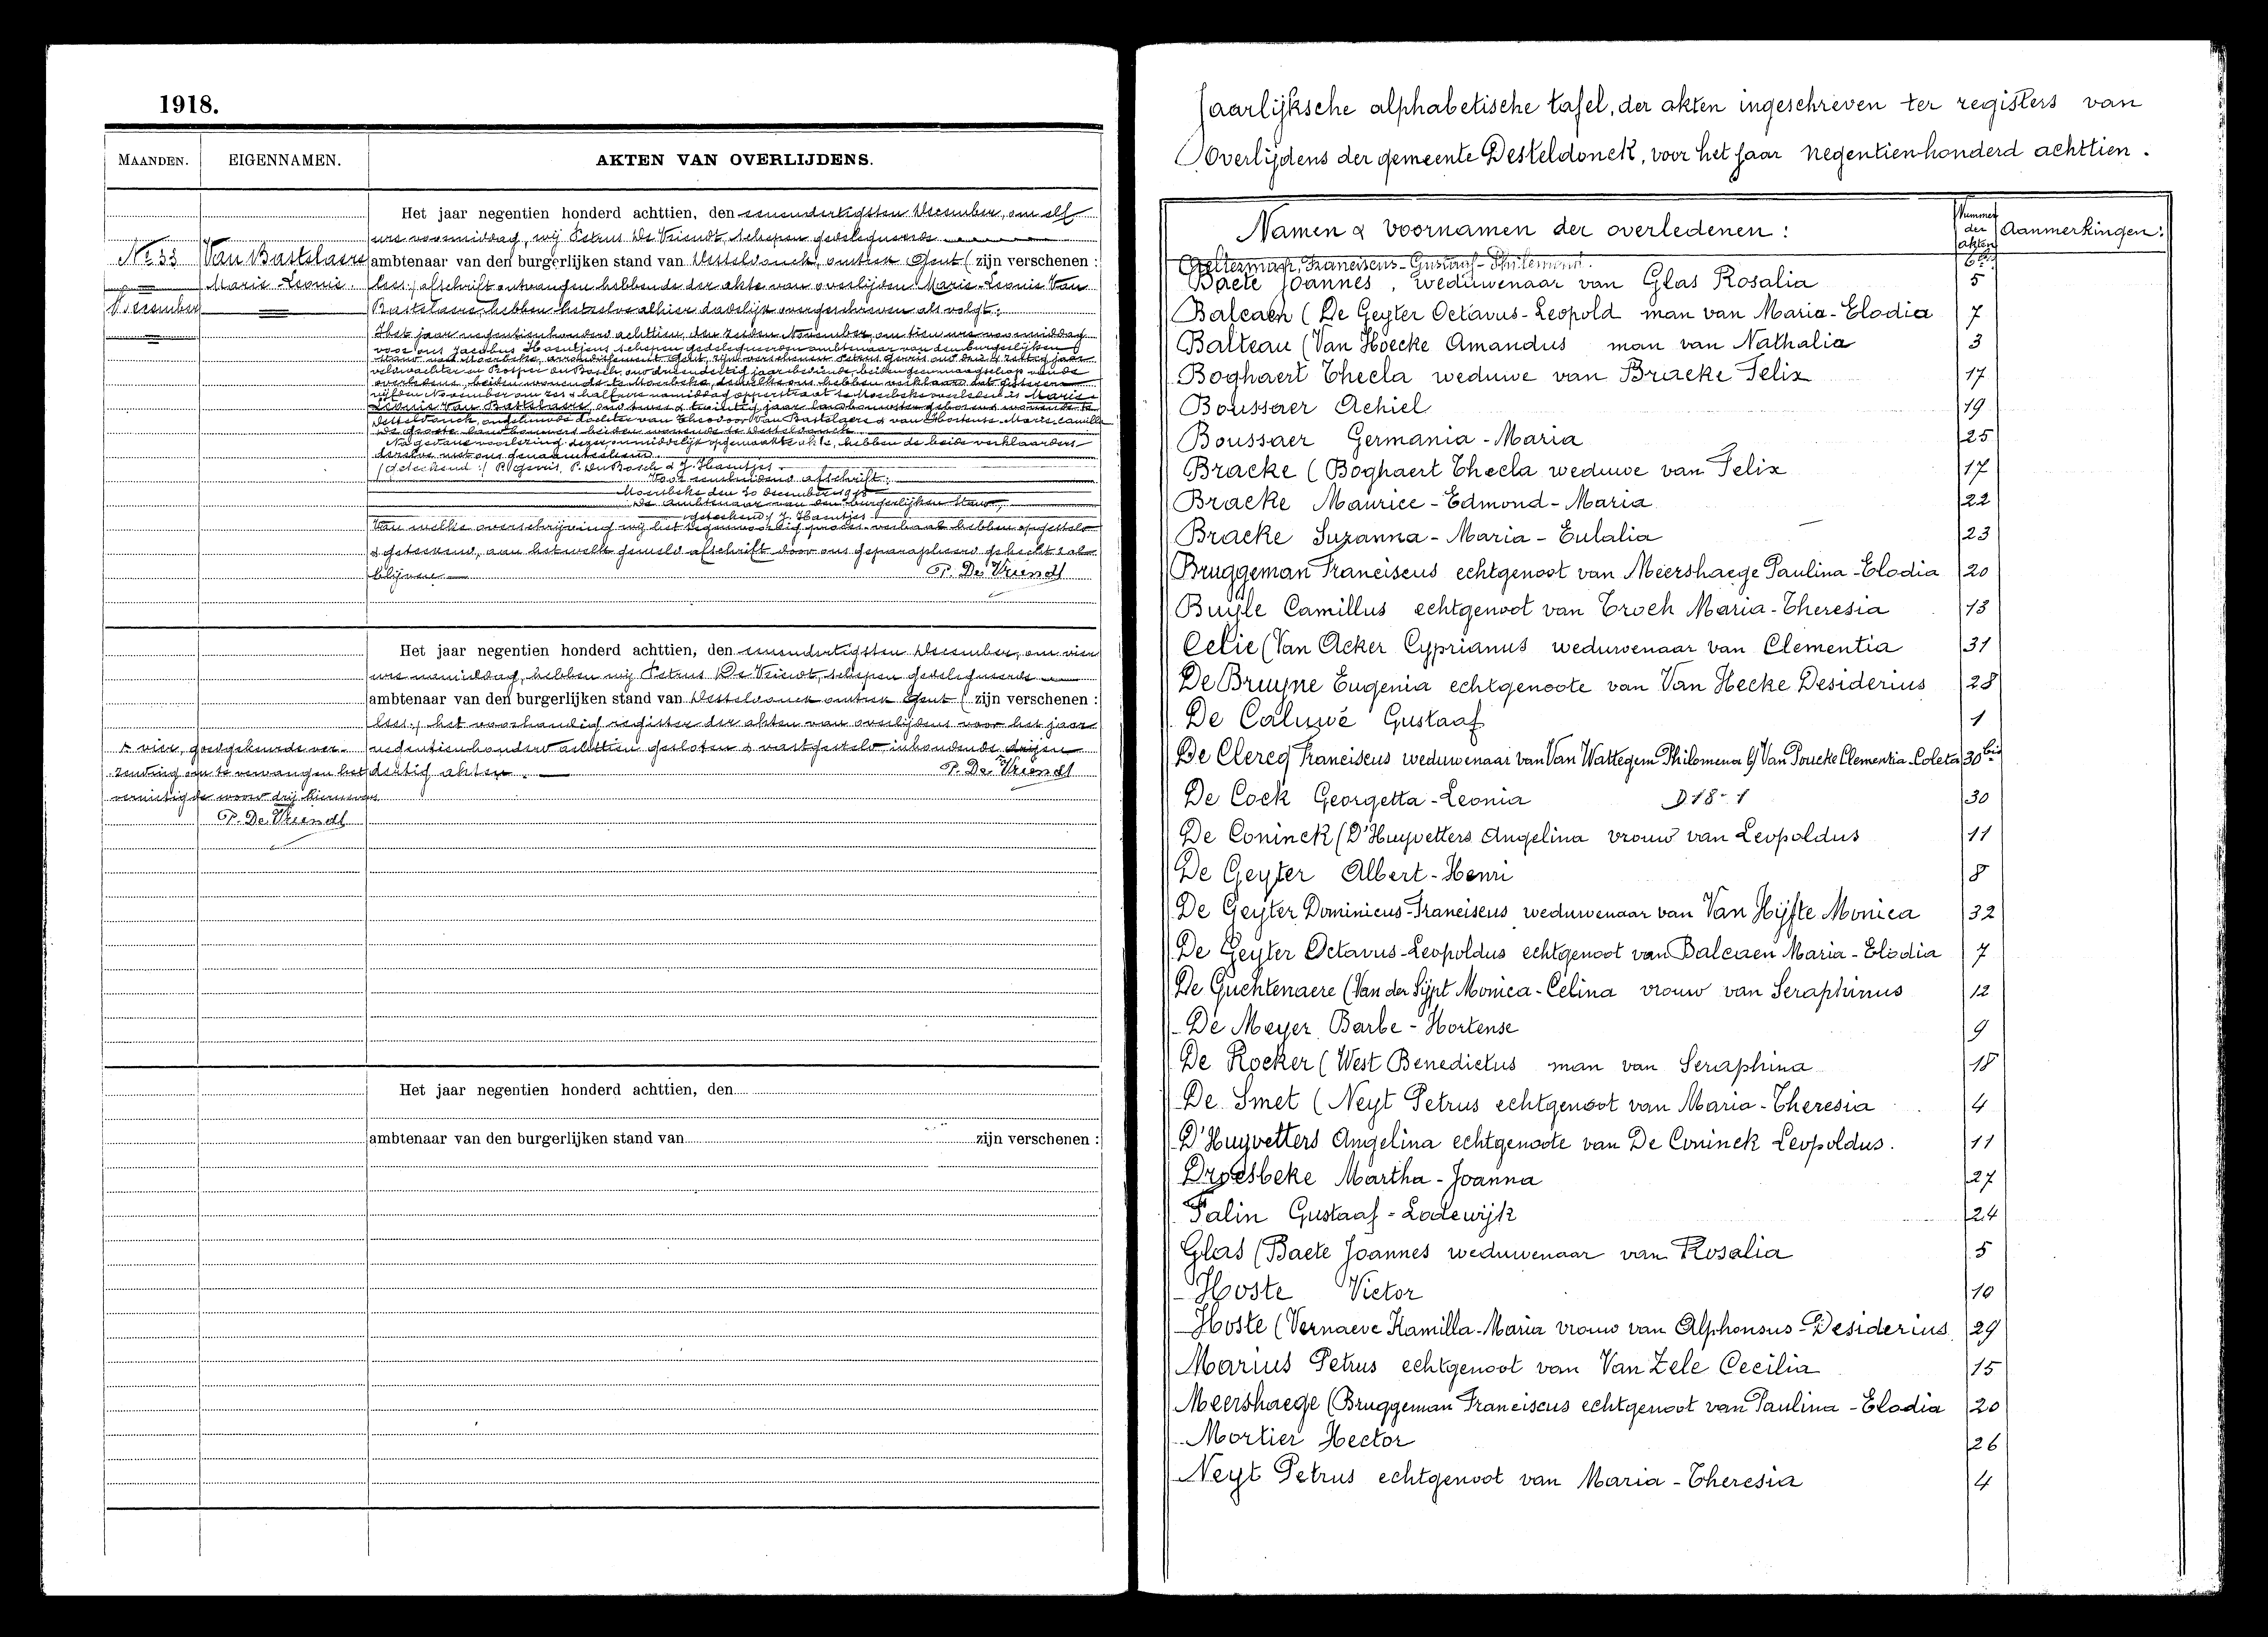 1918.
MAANDEN. EIGENNAMEN. AKTEN VAN OVERLIJDENS.
Het jaar negentien honderd achttien, den eenendertigsten December, om elf
ure voormiddag, wij Petrus De Vriendt, schepen gedelegueerde
No 33 Van Bastelaere ambtenaar van den burgerlijken stand van Desteldonck, omtrek Gent ( zijn verschenen :
Marie-Leonie. lees:) afschrift ontvangen hebbende der akte van overlijden Marie-Leonie Van
December Bastelaere hebben hetzelve alhier dadelijk overgeschreven als volgt:
Het jaar negentienhonderd achttien, den zesden November, om tien ure voormiddag
voor ons Jacobus Haentjens schepen gedelegueerden ambtenaar van den burgerlijken
stand van Moerbeke, arrondissement Gent, zijn verschenen Petrus Geviis oud drie & zestig jaar
veldwachter en Prosper Du Bosch, oud drieendertig jaar bediende, beiden geen maagschap van de
overledene, beiden wonende te Moerbeke, dewelke ons hebben verklaard dat gisteren
vijfden November om zes & half ure namiddag opperstraat te Moerbeke overleden is Marie-
Leonie Van Bastelaere, oud twee & twintig jaar landbouwster geboren & wonende te
Desteldonck, ongehuwde dochter van Theodoor Van Bastelaere & van Hortense-Marie-Camilla
De Groote, landbouwers beiden wonende te Desteldonck.
Na gedane voorlezing dezer, onmiddelijk opgemaakte akte, hebben de beide verklaarders
dezelve met ons genaamteekend.
(Geteekend :) P. Geviis, P. Du Bosch & J. Haentjes
Voor eensluidend afschrift:
Moerbeke den 30 December 1918
De Ambtenaar van den burgerlijken Stand,
(geteekend) J. Haentjes
Van welke overschrijving wij het tegenwoordig proces-verbaal hebben opgesteld
& geteekend, aan hetwelk gemeld afschrift door ons geparapheerd gehecht zal
blijven. P. De Vriendt
Het jaar negentien honderd achttien, den eenendertigsten December, om vier
ure namiddag, hebben wij Petrus De Vriendt, schepen gedelegueerde
ambtenaar van den burgerlijken stand van Desteldonck omtrek Gent ( zijn verschenen :
lees:) het voorhandig register der akten van overlijdens voor het jaar
& vier, goedgekeurde ver- negentienhonderd achttien gesloten & vastgesteld inhoudende drijen
zending om te vervangen het dertig akten. P. De Vriendt
vernietigde woord drij hiernevens
P. De Vriendt
Het jaar negentien honderd achttien, den
ambtenaar van den burgerlijken stand van zijn verschenen :
Jaarlijksche alphabetische tafel, der akten ingeschreven ter registers van
Overlijdens der gemeente Desteldonck, voor het jaar negentienhonderd achttien.
Namen & voornamen der overledenen : Nummer der akten Aanmerkingen:
Franciscus-Gustaaf-Philemond. 6bis
Baete Joannes, weduwenaar van Glas Rosalia 5
Balcaen (De Geyter Octavus-Leopold man van Maria-Elodia 7
Balteau (Van Hoecke Amandus man van Nathalia 3
Boghaert Thecla weduwe van Bracke Felix 17
Boussaer Achiel 19
Boussaer Germania-Maria 25
Bracke (Boghaert Thecla weduwe van Felix 17
Bracke Maurice-Edmond-Maria 22
Bracke Suzanna-Maria-Eulalia 23
Bruggeman Franciscus echtgenoot van Meershaege Paulina-Elodia 20
Buyle Camillus echtgenoot van Troch Maria-Theresia 13
Celie (Van Acker Cyprianus weduwenaar van Clementia 31
De Bruyne Eugenia echtgenoote van Van Hecke Desiderius 28
De Caluwé Gustaaf 1
De Clercq Franciscus weduwenaar van Van Wattegem Philomena & Van Poucke Clementia-Coleta 30bis
De Cock Georgetta-Leonia D 18-1 30
De Coninck (D'Huyvetters Angelina vrouw van Leopoldus 11
De Geyter Albert-Henri 8
De Geyter Dominicus-Franciscus weduwenaar van Van Hijfte Monica 32
De Geyter Octavus-Leopoldus echtgenoot van Balcaen Maria-Elodia 7
De Guchtenaere (Van der Sijpt Monica-Celina vrouw van Seraphinus 12
De Meyer Barbe-Hortense 9
De Rocker (West Benedictus man van Seraphina 18
De Smet (Neyt Petrus echtgenoot van Maria-Theresia 4
D'Huyvetters Angelina echtgenoote van De Coninck Leopoldus. 11
Droesbeke Martha-Joanna 27
Falin Gustaaf-Lodewijk 24
Glas (Baete Joannes weduwenaar van Rosalia 5
Hoste Victor 10
Hoste (Vernaeve Kamilla-Maria vrouw van Alphonsus-Desiderius 29
Marius Petrus echtgenoot van Van Zele Cecilia 15
Meershaege (Bruggeman Franciscus echtgenoot van Paulina-Elodia 20
Mortier Hector 26
Neyt Petrus echtgenoot van Maria-Theresia 4